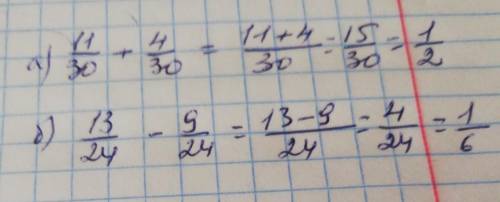 а) 11/30 + 4/30 = 11+4/30 = 15/30 = 1/2
б) 13/24 - 9/24 = 13-9/24 = 4/24 = 1/6